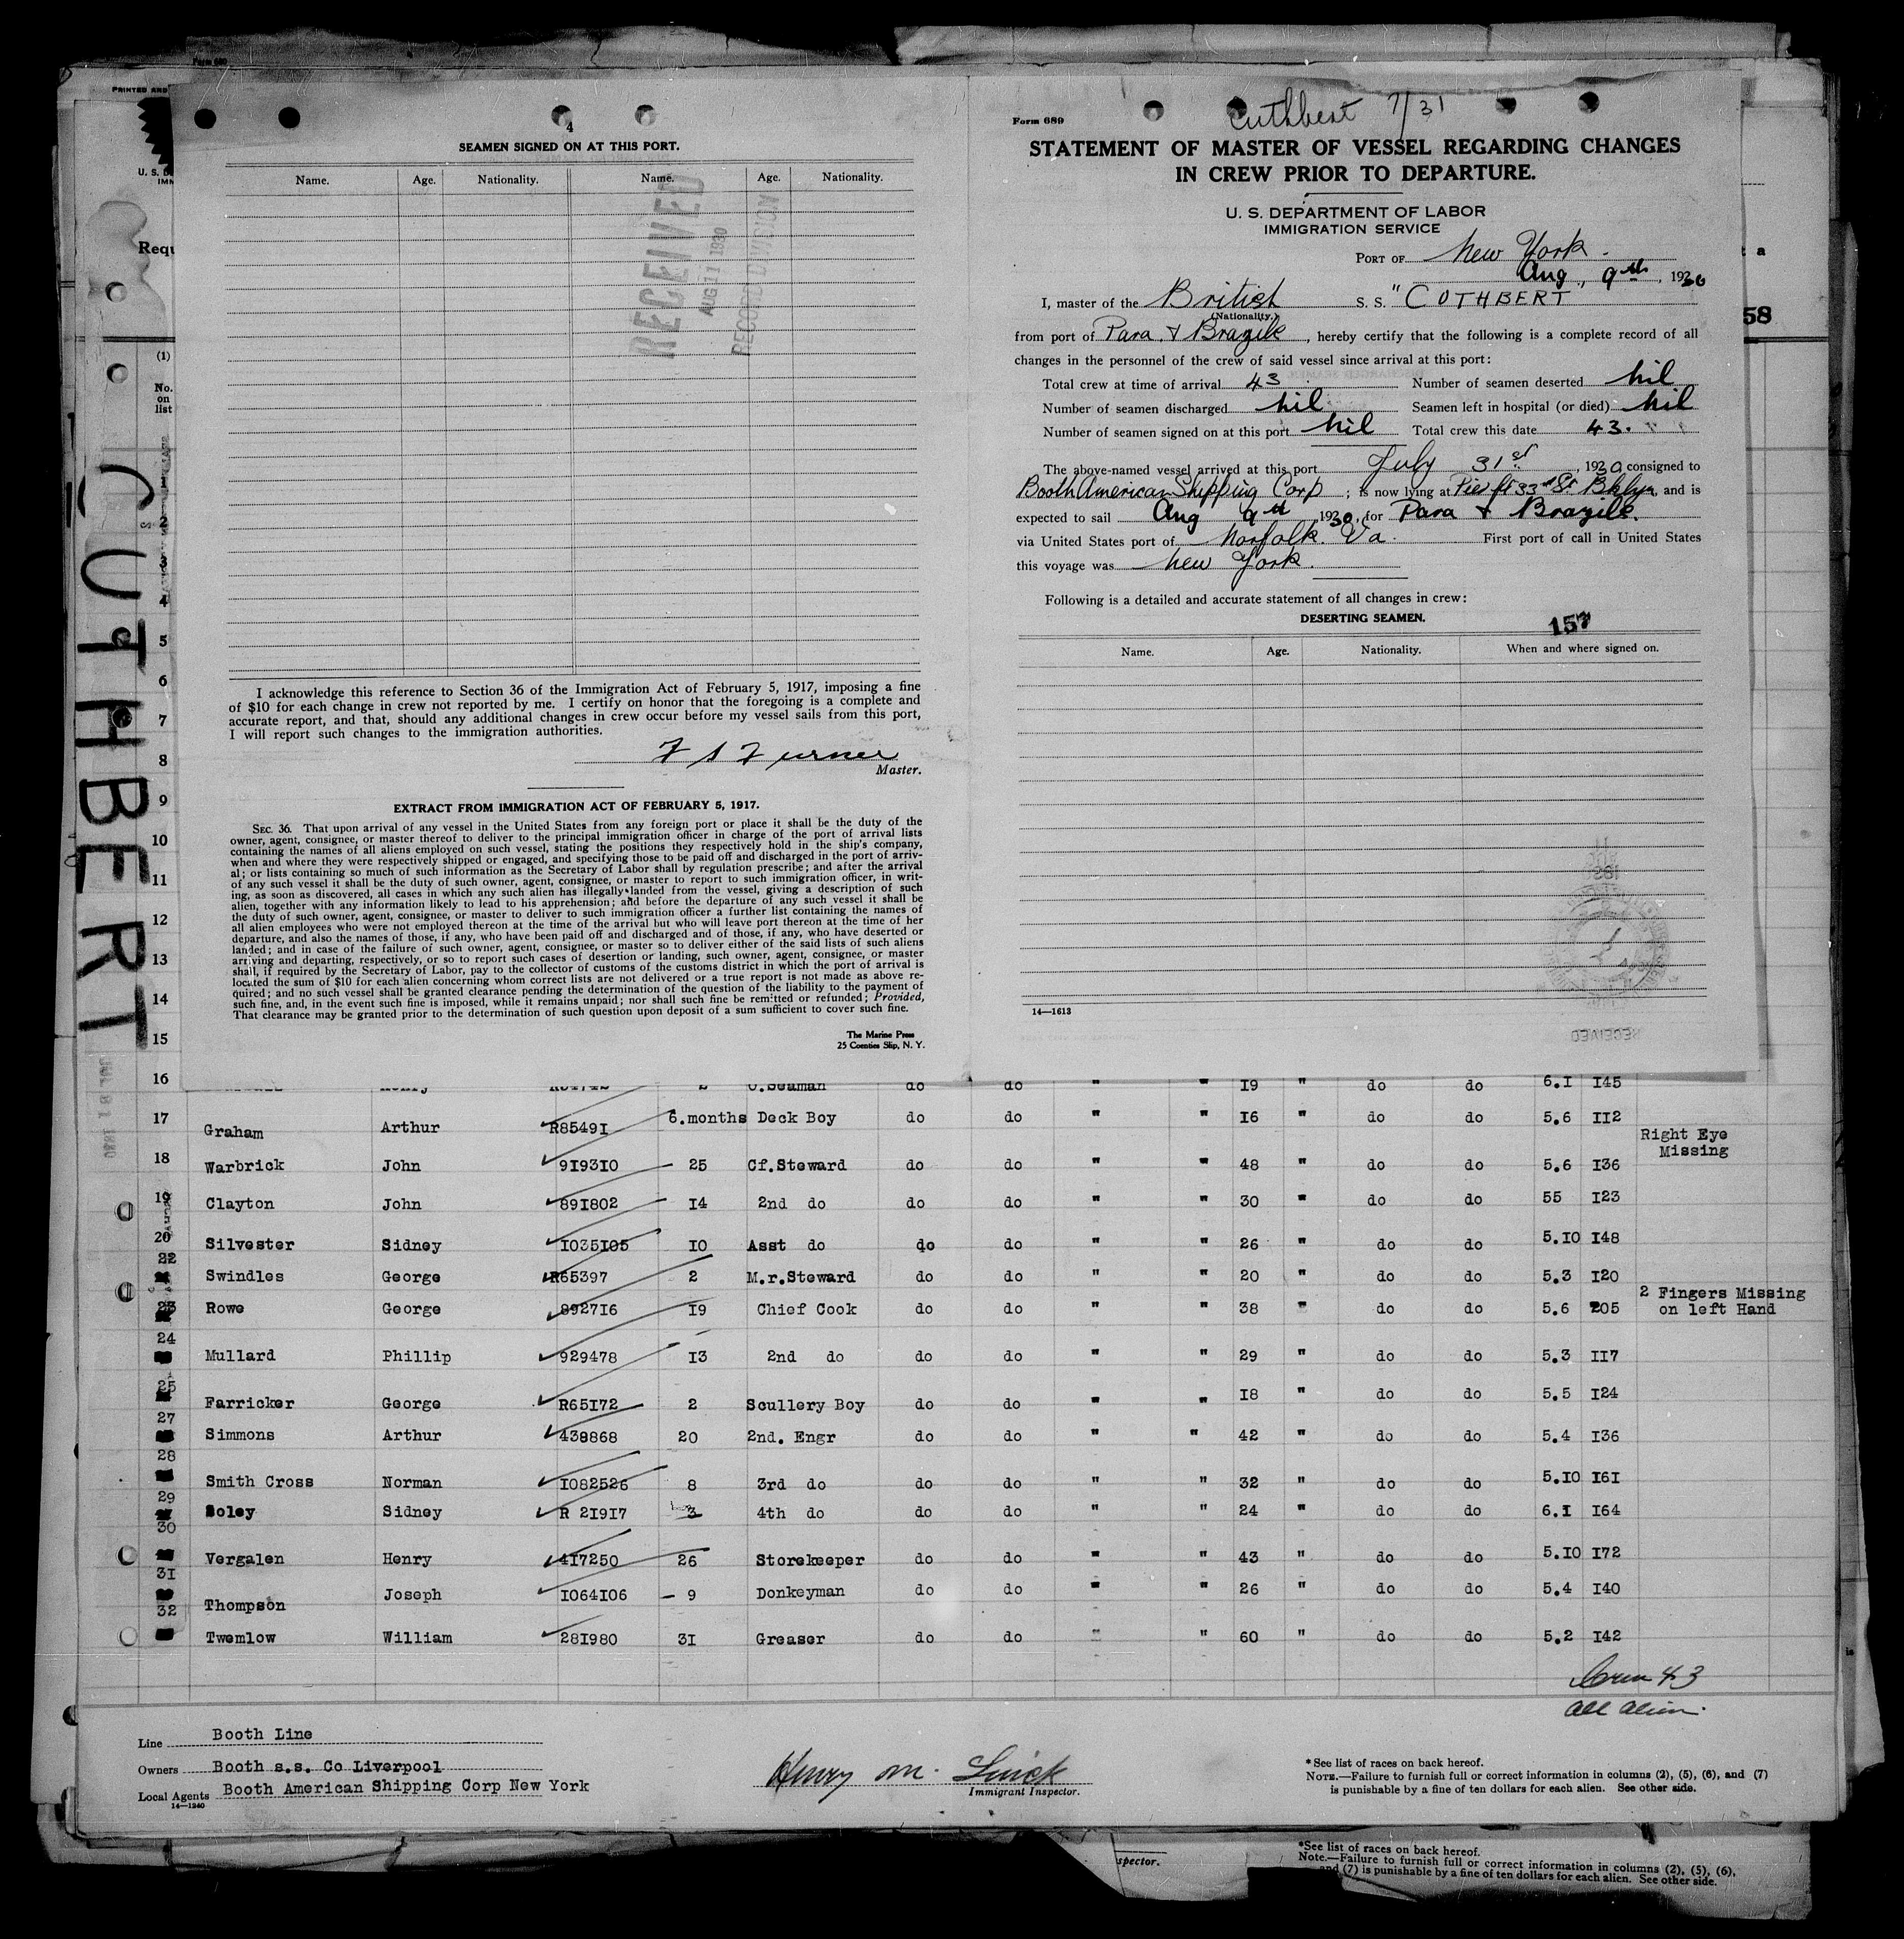 Form 689
PRINTED AND
U. S. D
IMM
Requ
(1)
No.
on
list
CUTHBERT
4
SEAMEN SIGNED ON AT THIS PORT.
Name. Age. Nationality. Name. Age. Nationality.
RECEIVED
AUG 11 1930
RECORD DIVISION
I acknowledge this reference to Section 36 of the Immigration Act of February 5, 1917, imposing a fine
of $10 for each change in crew not reported by me. I certify on honor that the foregoing is a complete and
accurate report, and that, should any additional changes in crew occur before my vessel sails from this port,
I will report such changes to the immigration authorities.
Master.
EXTRACT FROM IMMIGRATION ACT OF FEBRUARY 5, 1917.
SEC. 36. That upon arrival of any vessel in the United States from any foreign port or place it shall be the duty of the
owner, agent, consignee, or master thereof to deliver to the principal immigration officer in charge of the port of arrival lists
containing the names of all aliens employed on such vessel, stating the positions they respectively hold in the ship's company,
when and where they were respectively shipped or engaged, and specifying those to be paid off and discharged in the port of arriv-
al; or lists containing so much of such information as the Secretary of Labor shall by regulation prescribe; and after the arrival
of any such vessel it shall be the duty of such owner, agent, consignee, or master to report to such immigration officer, in writ-
ing, as soon as discovered, all cases in which any such alien has illegally landed from the vessel, giving a description of such
alien, together with any information likely to lead to his apprehension; and before the departure of any such vessel it shall be
the duty of such owner, agent, consignee, or master to deliver to such immigration officer a further list containing the names of
all alien employees who were not employed thereon at the time of the arrival but who will leave port thereon at the time of her
departure, and also the names of those, if any, who have been paid off and discharged and of those, if any, who have deserted or
landed; and in case of the failure of such owner, agent, consignee, or master so to deliver either of the said lists of such aliens
arriving and departing, respectively, or so to report such cases of desertion or landing, such owner, agent, consignee, or master
shall, if required by the Secretary of Labor, pay to the collector of customs of the customs district in which the port of arrival is
located the sum of $10 for each alien concerning whom correct lists are not delivered or a true report is not made as above re-
quired; and no such vessel shall be granted clearance pending the determination of the question of the liability to the payment of
such fine, and, in the event such fine is imposed, while it remains unpaid; nor shall such fine be remitted or refunded; Provided,
That clearance may be granted prior to the determination of such question upon deposit of a sum sufficient to cover such fine.
The Marine Press
25 Coenties Slip, N. Y.
Form 689
Cuthbert 7/31
STATEMENT OF MASTER OF VESSEL REGARDING CHANGES
IN CREW PRIOR TO DEPARTURE.
U. S. DEPARTMENT OF LABOR
IMMIGRATION SERVICE
PORT OF New York.
Aug, 9th, 1930
I, master of the British S. S. "CUTHBERT
(Nationality.)
from port of Para & Brazils, hereby certify that the following is a complete record of all
changes in the personnel of the crew of said vessel since arrival at this port:
Total crew at time of arrival 43 Number of seamen deserted nil
Number of seamen discharged nil Seamen left in hospital (or died) nil
Number of seamen signed on at this port nil Total crew this date 43.
The above-named vessel arrived at this port July 31st, 1930, consigned to
Booth American Shipping Corp; is now lying at Pier ft 33rd St Bklyn, and is
expected to sail Aug 9th 1930, for Para & Brazils.
via United States port of Norfolk. Va. First port of call in United States
this voyage was New York.
Following is a detailed and accurate statement of all changes in crew:
DESERTING SEAMEN.
157
Name. Age. Nationality. When and where signed on.
14—1613
RECEIVED
a
58
1
2
3
4
5
6
7
8
9
10
11
12
13
14
15
16 O.Seaman do do " " 19 " do do 6.1 145
17 Graham Arthur R85491 6.months Deck Boy do do " " 16 " do do 5.6 112
18 Warbrick John 919310 25 Cf.Steward do do " " 48 " do do 5.6 136 Right Eye Missing
19 Clayton John 891802 14 2nd do do do " " 30 " do do 55 123
20 Silvester Sidney 1035105 10 Asst do do do " " 26 " do do 5.10 148
22 Swindles George R65397 2 M.r.Steward do do " " 20 " do do 5.3 120
23 Rowe George 892716 19 Chief Cook do do " " 38 " do do 5.6 205 2 Fingers Missing on left Hand
24 Mullard Phillip 929478 13 2nd do do do " " 29 " do do 5.3 117
25 Farricker George R65172 2 Scullery Boy do do " " 18 " do do 5.5 124
27 Simmons Arthur 439868 20 2nd. Engr do do " " 42 " do do 5.4 136
28 Smith Cross Norman 1082526 8 3rd do do do " " 32 " do do 5.10 161
29 Soley Sidney R 21917 3 4th do do do " " 24 " do do 6.1 164
30 Vergalen Henry 417250 26 Storekeeper do do " " 43 " do do 5.10 172
31 Thompson Joseph 1064106 9 Donkeyman do do " " 26 " do do 5.4 140
32 Twemlow William 281980 31 Greaser do do " " 60 " do do 5.2 142
Crew 43
all alien.
Line Booth Line
Owners Booth s.s. Co Liverpool
Local Agents Booth American Shipping Corp New York
14—1240
Henry M.
Immigrant Inspector.
*See list of races on back hereof.
NOTE.—Failure to furnish full or correct information in columns (2), (5), (6), and (7)
is punishable by a fine of ten dollars for each alien. See other side.
spector.
*See list of races on back hereof.
Note.—Failure to furnish full or correct information in columns (2), (5), (6),
and (7) is punishable by a fine of ten dollars for each alien. See other side.